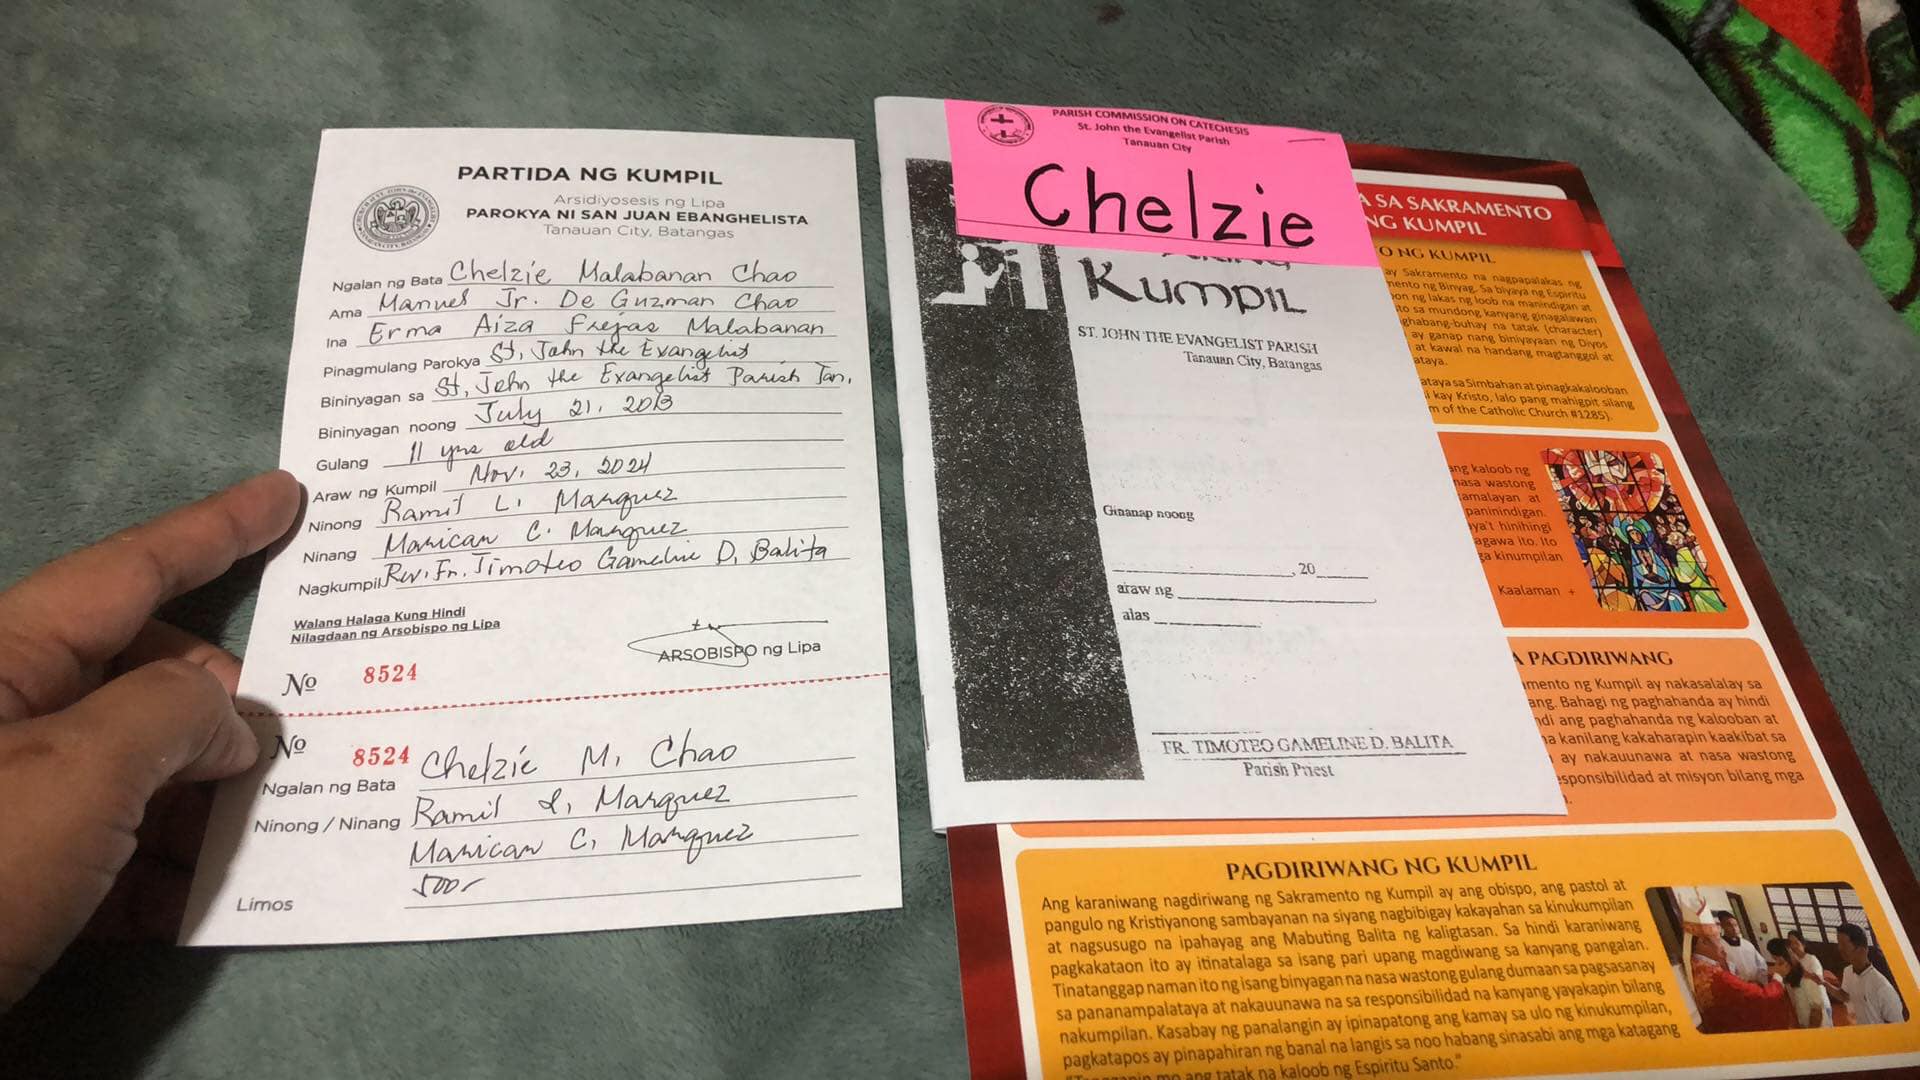 PARTIDA NG KUMPIL
Arsidiyosesis ng Lipa
PAROKYA NI SAN JUAN EBANGHELISTA
Tanauan City, Batangas
Ngalan ng Bata Chelzie Malabanan Chao
Ama Manuel Jr. De Guzman Chao
Ina Erma Aiza Frejas Malabanan
Pinagmulang Parokya St. John the Evangelist
Bininyagan sa St. John the Evangelist Parish Tan.
Bininyagan noong July 21, 2013
Gulang 11 yrs old
Araw ng Kumpil Nov. 23, 2024
Ninong Ramil L. Marquez
Ninang Marican C. Marquez
Nagkumpil Rev. Fr. Timoteo Gameline D. Balita
Walang Halaga Kung Hindi
Nilagdaan ng Arsobispo ng Lipa
ARSOBISPO ng Lipa
No 8524
No 8524
Ngalan ng Bata Chelzie M. Chao
Ninong / Ninang Ramil L. Marquez
Marican C. Marquez
Limos 500-
PARISH COMMISSION ON CATECHESIS
St. John the Evangelist Parish
Tanauan City
Chelzie
Kumpil
ST. JOHN THE EVANGELIST PARISH
Tanauan City, Batangas
Ginanap noong
, 20
araw ng
alas
FR. TIMOTEO GAMELINE D. BALITA
Parish Priest
A SA SAKRAMENTO
NG KUMPIL
O NG KUMPIL
ay Sakramento na nagpapalakas ng
mento ng Binyag. Sa biyaya ng Espiritu
on ng lakas ng loob na manindigan at
to sa mundong kanyang ginagalawan
ghabang-buhay na tatak (character)
ay ganap nang biniyayaan ng Diyos
at kawal na handang magtanggol at
ataya.
ataya sa Simbahan at pinagkakalooban
kay Kristo, lalo pang mahigpit silang
m of the Catholic Church #1285).
ang kaloob ng
nasa wastong
amalayan at
paninindigan.
ya't hinihingi
agawa ito. Ito
ga kinumpilan
Kaalaman +
A PAGDIRIWANG
mento ng Kumpil ay nakasalalay sa
ang. Bahagi ng paghahanda ay hindi
ndi ang paghahanda ng kalooban at
na kanilang kakaharapin kaakibat sa
ay nakauunawa at nasa wastong
esponsibilidad at misyon bilang mga
PAGDIRIWANG NG KUMPIL
Ang karaniwang nagdiriwang ng Sakramento ng Kumpil ay ang obispo, ang pastol at
pangulo ng Kristiyanong sambayanan na siyang nagbibigay kakayahan sa kinukumpilan
at nagsusugo na ipahayag ang Mabuting Balita ng kaligtasan. Sa hindi karaniwang
pagkakataon ito ay itinatalaga sa isang pari upang magdiwang sa kanyang pangalan.
Tinatanggap naman ito ng isang binyagan na nasa wastong gulang dumaan sa pagsasanay
sa pananampalataya at nakauunawa na sa responsibilidad na kanyang yayakapin bilang
nakumpilan. Kasabay ng panalangin ay ipinapatong ang kamay sa ulo ng kinukumpilan,
pagkatapos ay pinapahiran ng banal na langis sa noo habang sinasabi ang mga katagang
"Tanggapin mo ang tatak na kaloob ng Espiritu Santo."